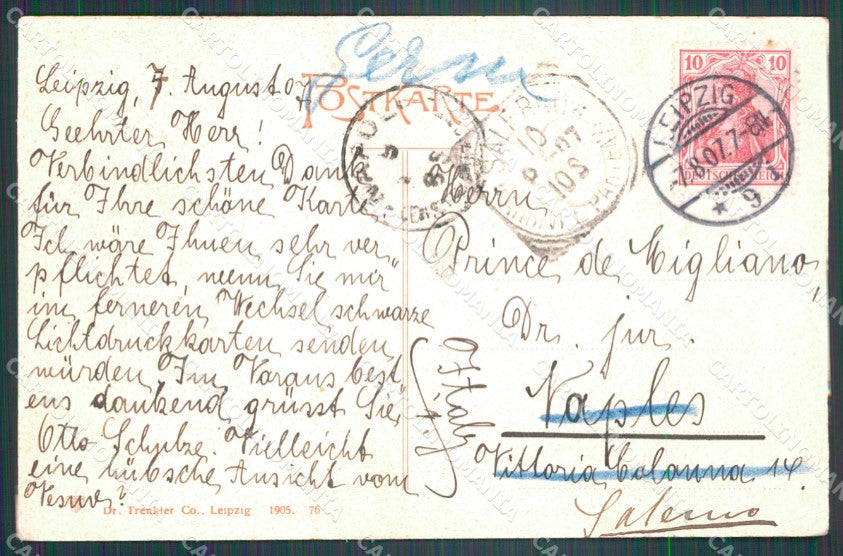 Leipzig, 7. August 07
Geehrter Herr!
Verbindlichsten Dank
für Ihre schöne Karte.
Ich wäre Ihnen sehr ver-
pflichtet, wenn Sie mir
im ferneren Wechsel schwarze
Lichtdruckkarten senden
würden. Im Voraus best-
ens dankend grüsst Sie
Otto Schulze. Vielleicht
eine hübsche Ansicht vom
Vesuv?
Dr. Trenkler Co., Leipzig 1905. 76
POSTKARTE
10 10
DEUTSCHES REICH
LEIPZIG
7.8.07. 7-8N.
* 9
Herrn
Prince de Migliano,
Dr. jur.
Naples
Vittoria Colonna 14.
Italy
Salerno